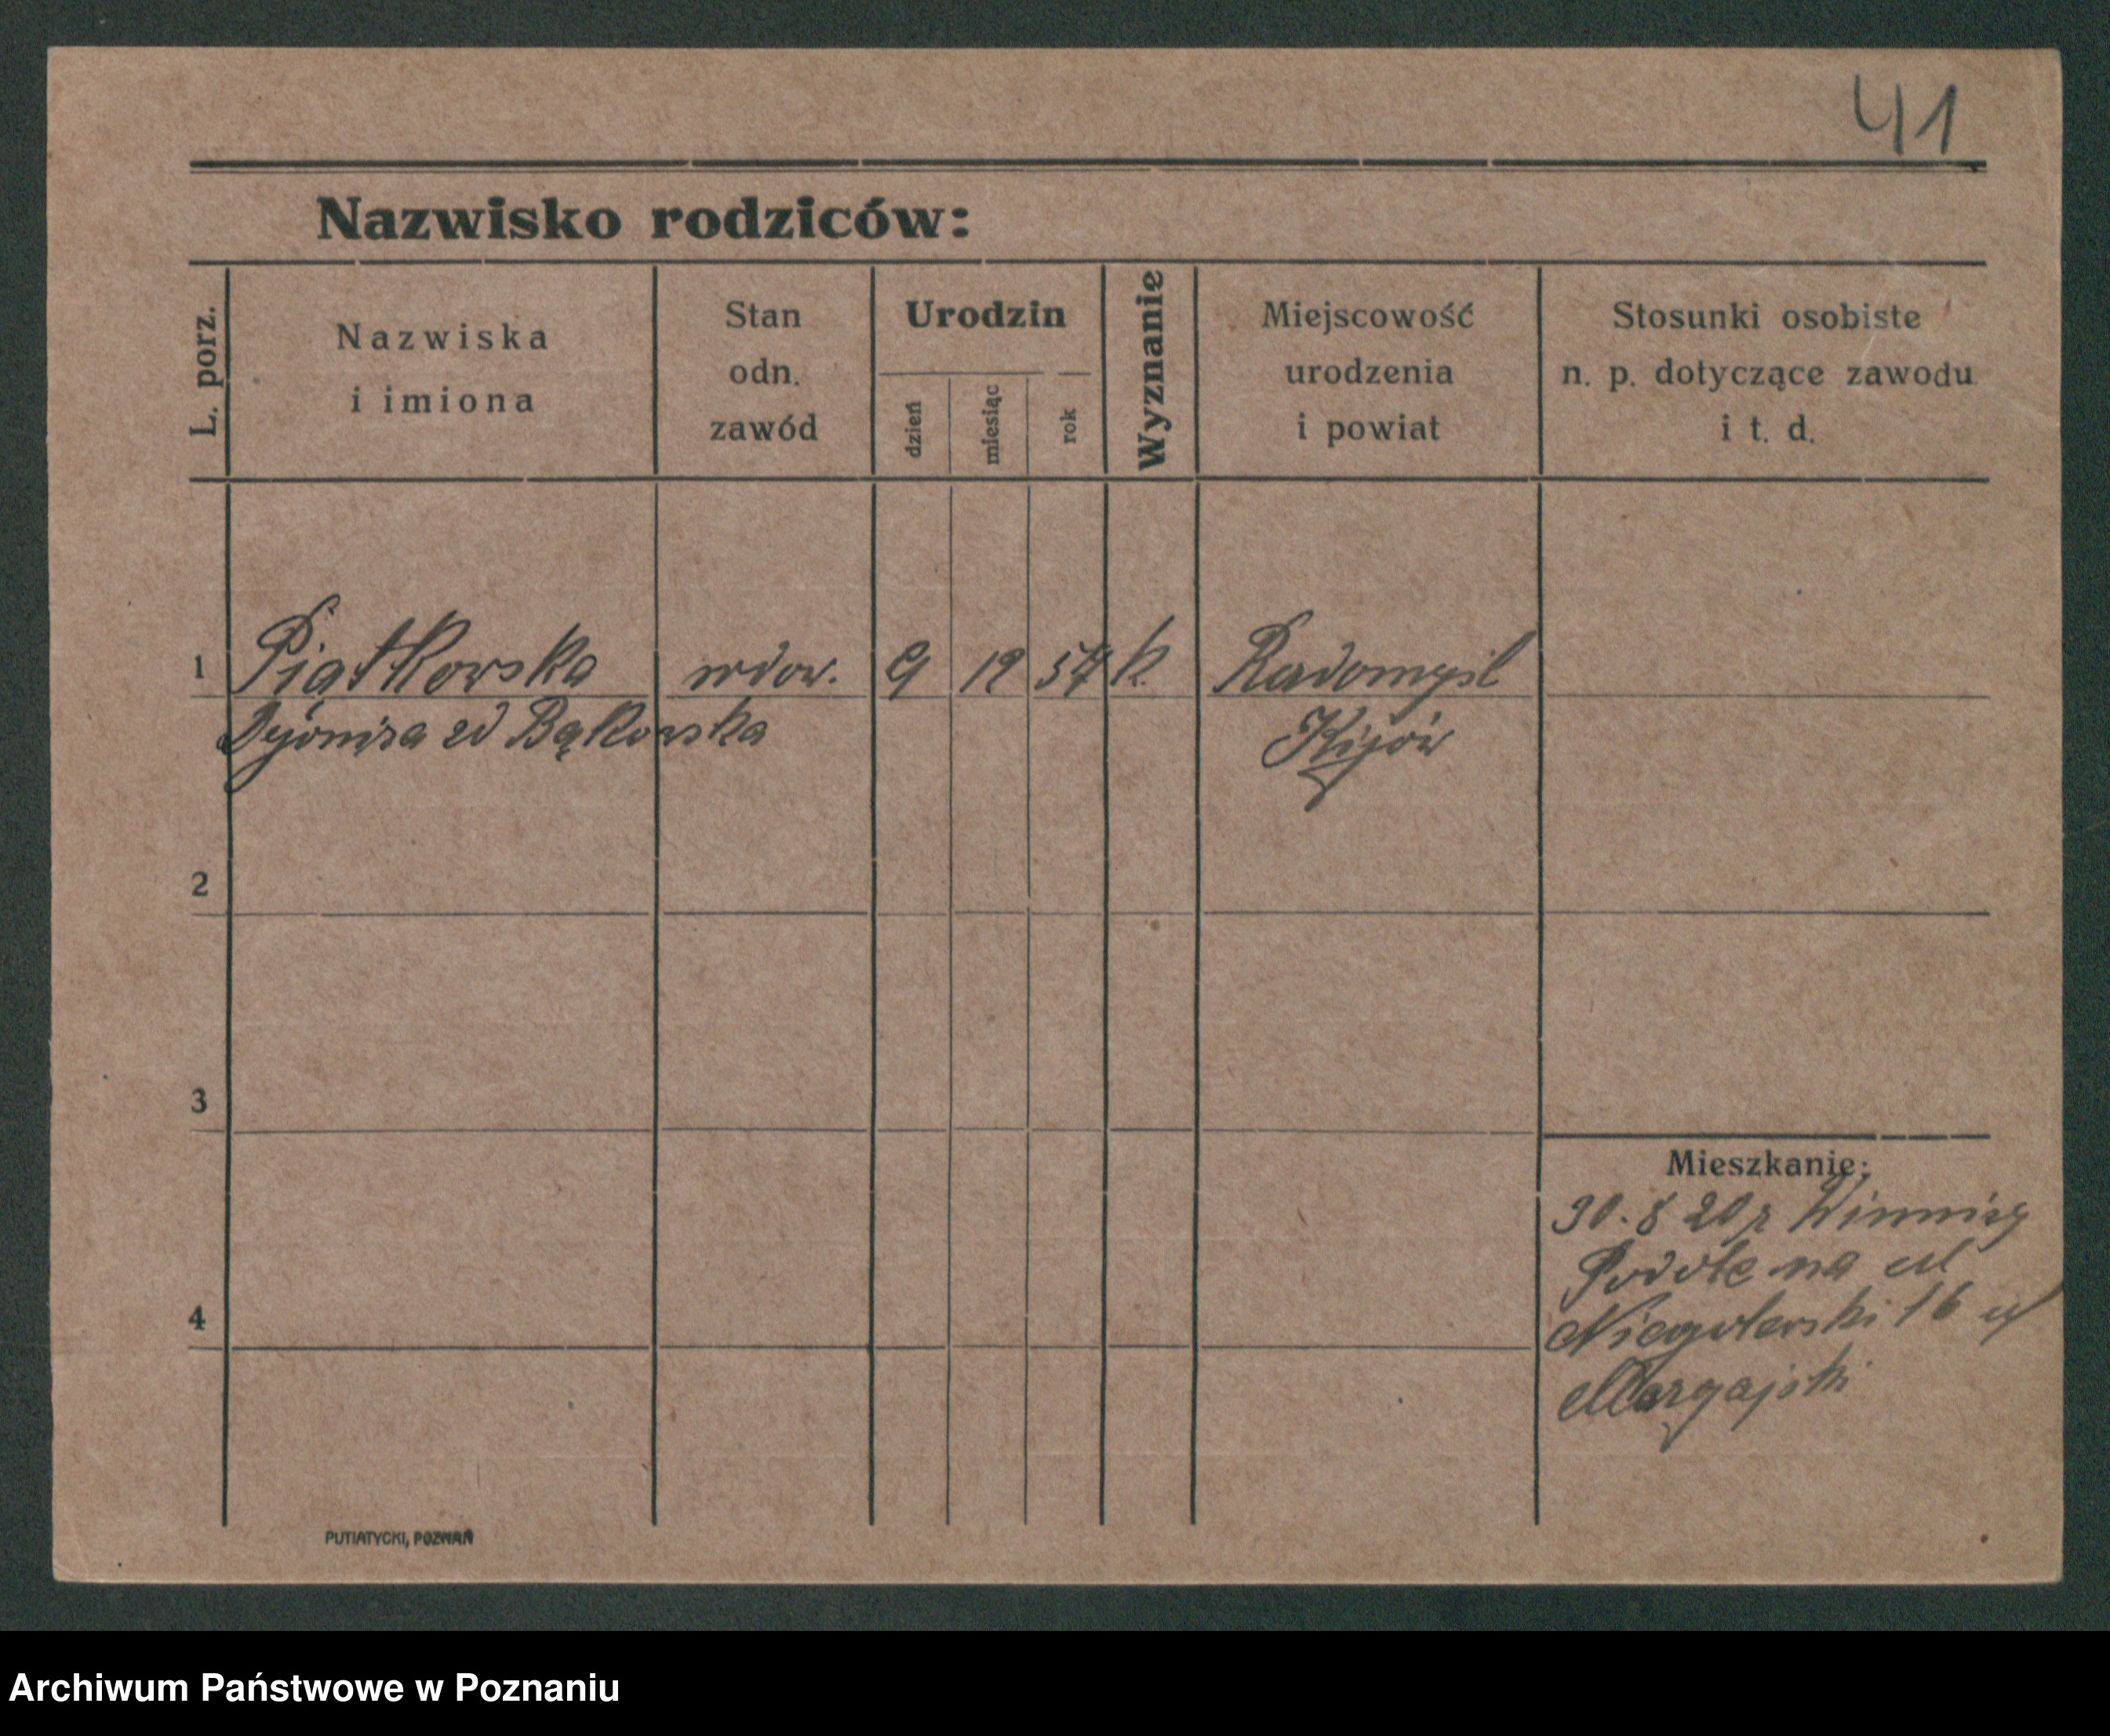 41
Nazwisko rodziców:
L. porz.
Nazwiska
i imiona
Stan
odn.
zawód
Urodzin
dzień
miesiąc
rok
Wyznanie
Miejscowość
urodzenia
i powiat
Stosunki osobiste
n. p. dotyczące zawodu
i t. d.
1 Piątkowska wdow. 9 12 57 k. Radomyśl
zd Bąkowska Kijów
2
3
Mieszkanie:
30. 8 20 r
na
4
16
PUTIATYCKI, POZNAŃ
Archiwum Państwowe w Poznaniu